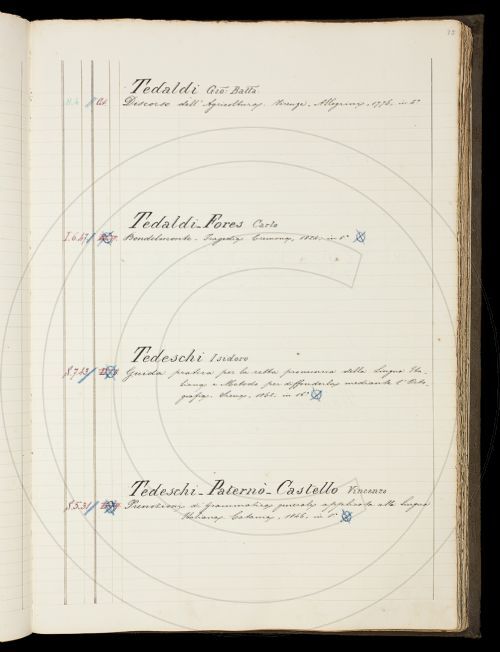 Tedaldi Gio: Batta
Discorso dell'Agricoltura. Firenze, Allegrini, 1776. in 8°
Tedaldi-Fores Carlo
I.6.47 Bondelmonte - Tragedia. Cremona, 1824. in 8°
Tedeschi Isidoro
8.7.43 Guida pratica per la retta pronuncia della lingua Ita-
liana e Metodo per diffonderla mediante l'Orto-
grafia. in 16°
Tedeschi-Paternò-Castello Vincenzo
8.5.31 Prenozioni di Grammatica generale applicate alla lingua
Italiana. Catania, 1846. in 8°